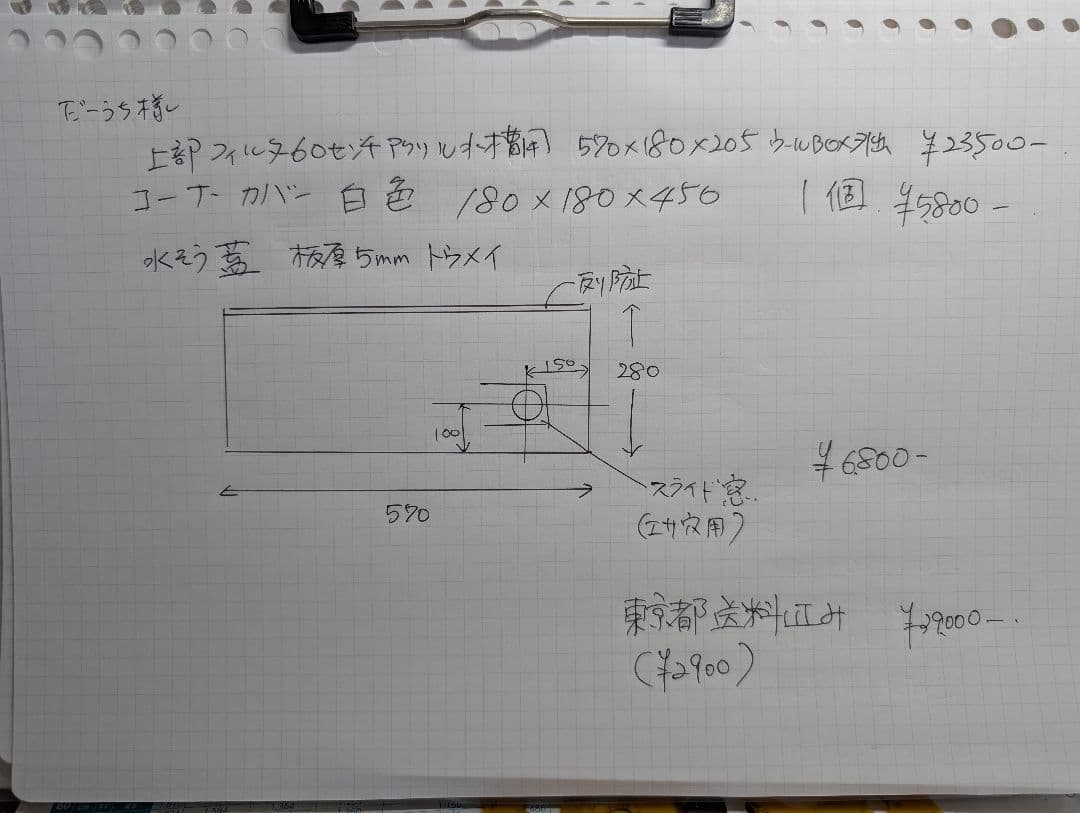 だーうち様
上部フィルタ60センチアクリル水槽用 570×180×205 ウールBOX引出 ¥23,500-
コーナーカバー 白色 180×180×450 1個 ¥5,800-
水そう蓋 板厚5mm トウメイ
反り防止
150
280
100
¥6,800-
スライド窓
570
(エサ穴用)
東京都送料込み ¥39,000-
(¥2900)